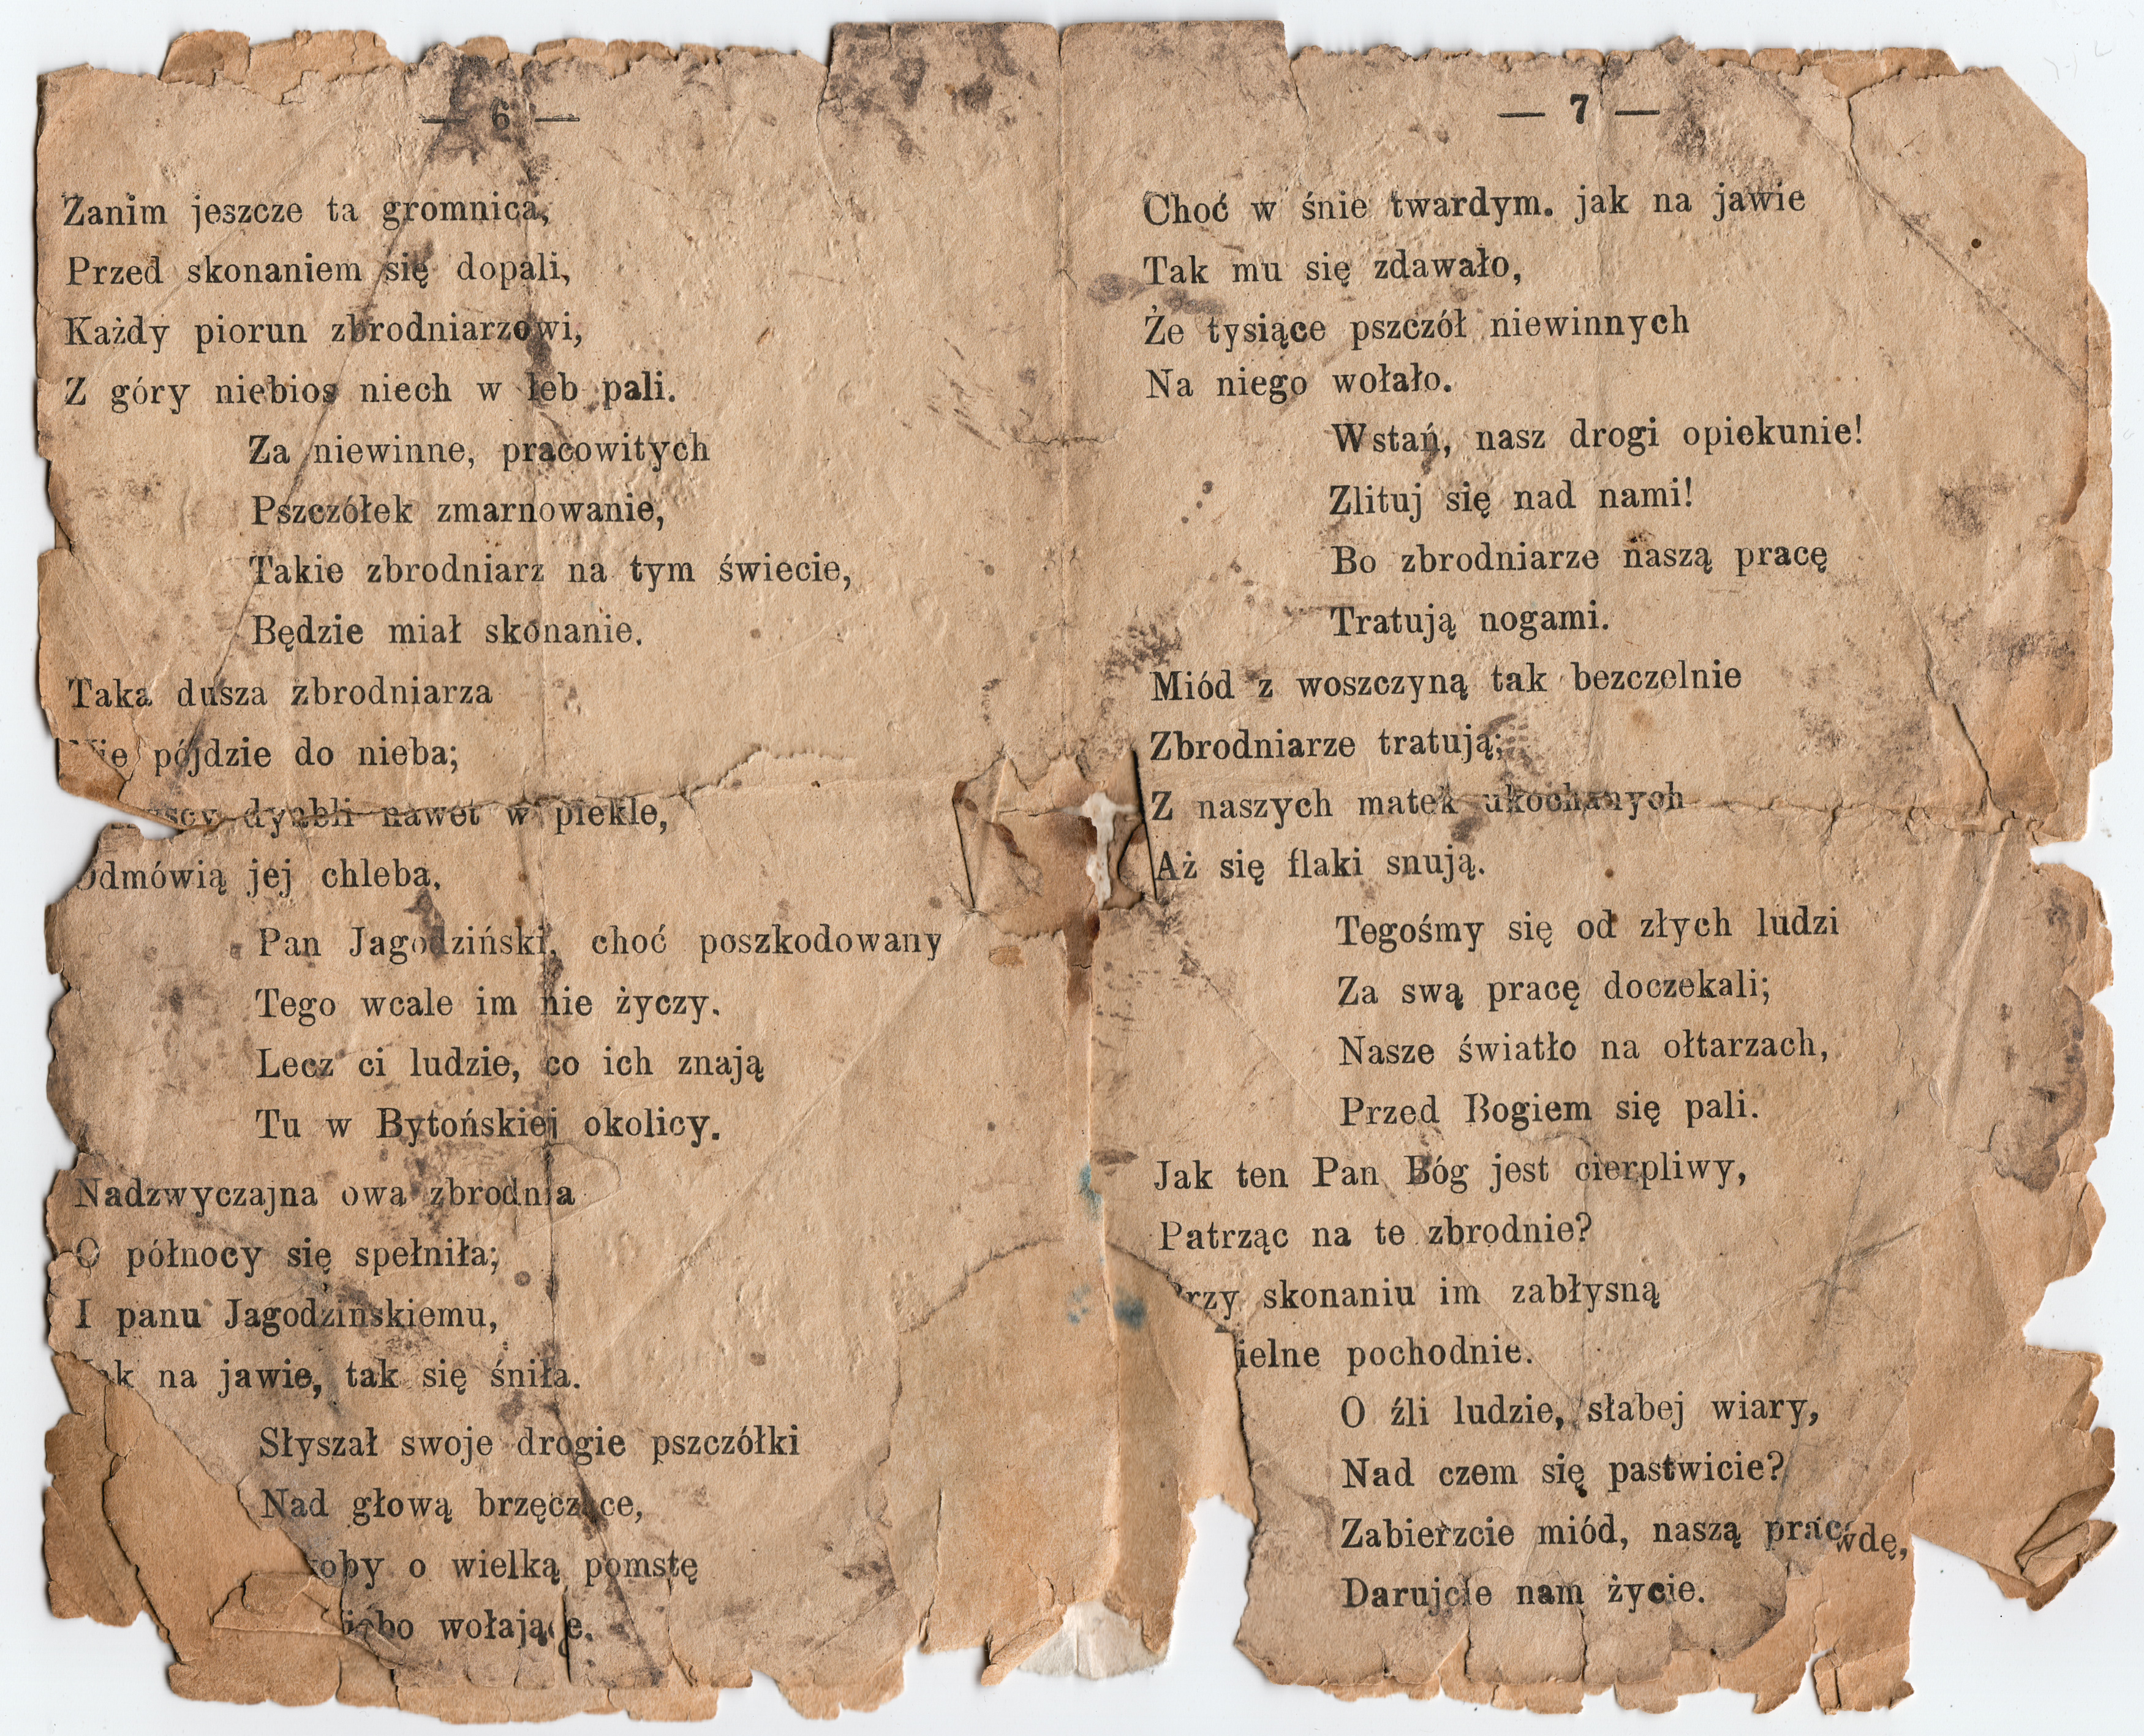 — 6 —
Zanim jeszcze ta gromnica,
Przed skonaniem się dopali,
Każdy piorun zbrodniarzowi,
Z góry niebios niech w łeb pali.
Za niewinne, pracowitych
Pszczółek zmarnowanie,
Takie zbrodniarz na tym świecie,
Będzie miał skonanie.
Taka dusza zbrodniarza
Nie pójdzie do nieba;
dyabli nawet w piekle,
Odmówią jej chleba,
Pan Jagodziński, choć poszkodowany
Tego wcale im nie życzy.
Lecz ci ludzie, co ich znają
Tu w Bytońskiej okolicy.
Nadzwyczajna owa zbrodnia
O północy się spełniła;
I panu Jagodzińskiemu,
na jawie, tak się śniła.
Słyszał swoje drogie pszczółki
Nad głową brzęczące,
o wielką pomstę
wołające.
— 7 —
Choć w śnie twardym. jak na jawie
Tak mu się zdawało,
Że tysiące pszczół niewinnych
Na niego wołało.
Wstań, nasz drogi opiekunie!
Zlituj się nad nami!
Bo zbrodniarze naszą pracę
Tratują nogami.
Miód z woszczyną tak bezczelnie
Zbrodniarze tratują;
Z naszych matek ukochanych
Aż się flaki snują.
Tegośmy się od złych ludzi
Za swą pracę doczekali;
Nasze światło na ołtarzach,
Przed Bogiem się pali.
Jak ten Pan Bóg jest cierpliwy,
Patrząc na te zbrodnie?
Przy skonaniu im zabłysną
pochodnie.
O źli ludzie, słabej wiary,
Nad czem się pastwicie?
Zabierzcie miód, naszą
Darujcie nam życie.